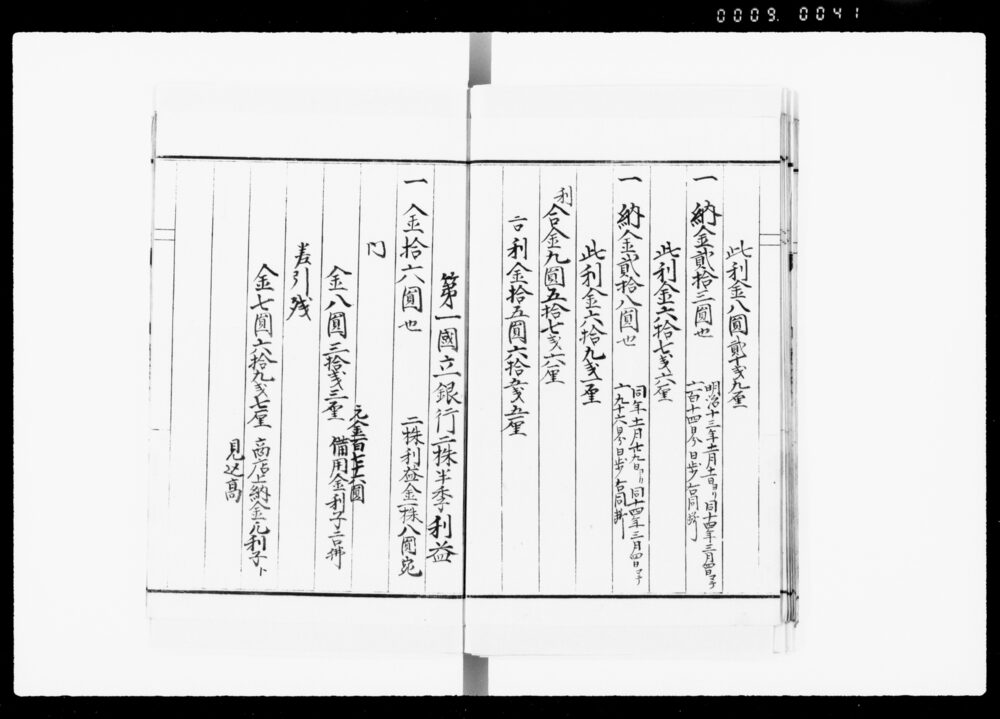 0009. 0041
此利金八圓貳十戔九厘
一 納金貳拾三圓也
明治十三年十一月十一日ゟ同十四年三月四日マテ
百十四日分日歩
此利金六拾七戔六厘
一 納金貳拾八圓也
同年十一月廿九日ゟ同十四年三月四日マテ
九十六日分日歩
此利金六拾九戔一厘
利
合金九圓五拾七戔六厘
利金拾五圓六拾戔五厘
第一國立銀行二株半季利益
一 金拾六圓也 二株利益金一株八圓宛
内
元金百七十六圓
金八圓三拾戔三厘 備用金利子
差引残
金七圓六拾九戔七厘 商店上納金元利子ト
見込高